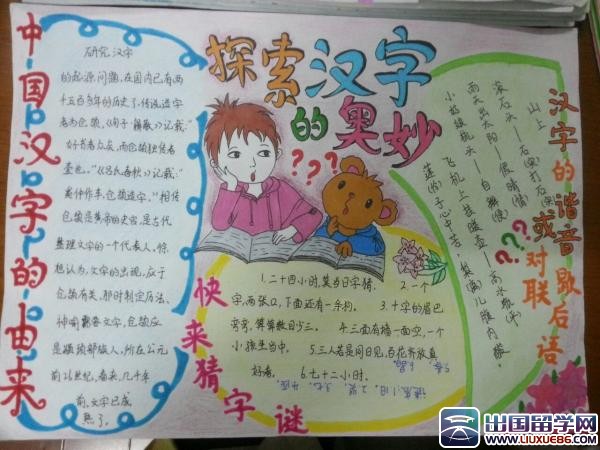 探索汉字
的奥妙
中国汉字的由来
研究汉字
的起源问题,在国内已有两
千五百多年的历史了,传说造字
者为仓颉,《荀子·解蔽》记载:“
好书者众矣,而仓颉独传者
壹也。”《吕氏春秋》记载:“
奚仲作车,仓颉造字。”相传
仓颉是黄帝的史官,是古代
整理文字的一个代表人,
认为,文字的出现,应于
仓颉有关,那时制定历法、
神明需要文字,仓颉应
是颛顼部族人,所在公元
前26世纪,看来,几千年
前,文字已成
熟了。
???
快来猜字谜
1.二十四小时,莫当日字猜。2.一个
字,两张口,下面还有一条狗。3.十字的尾巴
弯弯,算算数目少三。4.三面有墙一面空,一个
小孩坐当中。5.三人若是同日见,百花齐放真
好看。6.七十二小时。
汉字的谐音歇后语
或对联
???
山上
滚石头——石(实)打石(实)
雨天出太阳——假晴(情)
小姑娘梳头——自辫(便)
飞机上挂暖壶——高水瓶(平)
莲(怜)子心中苦,梨(离)儿腹内酸。
出国留学网
WWW.LIUXUE86.COM